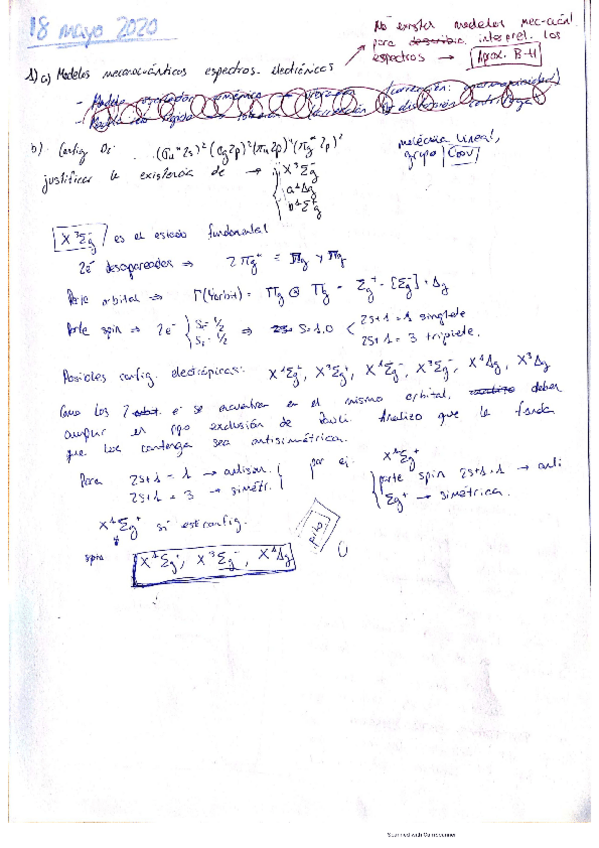 18 mayo 2020
No existen modelos mec-cuánt.
para describir interpret. los
espectros → Aprox. B-H
1) a) Modelos mecanocuánticos espectros. electrónicos
b) Config O₂: (σu*2s)² (σg2p)² (πu2p)⁴ (πg*2p)²
molécula lineal,
grupo C∞v
justificar la existencia de → X³Σg⁻
a¹Δg
b¹Σg⁺
X³Σg⁻ es el estado fundamental
2e⁻ desapareados ⇒ 2πg* = πg y πg
Parte orbital ⇒ Γ(Ψorbit) = Πg ⊗ Πg = Σg⁺ - [Σg⁻] + Δg
Parte spin ⇒ 2e⁻ { S₁ = 1/2 ⇒ S=1,0 < 2S+1 = 1 singlete
S₂ = 1/2 2S+1 = 3 triplete.
Posibles config. electrónicas: X¹Σg⁺, X³Σg⁺, X¹Σg⁻, X³Σg⁻, X¹Δg, X³Δg
Como los 2 e⁻ se encuentran en el mismo orbital, deben
cumplir el ppo exclusión de Pauli. Analizo que la
que los contenga sea antisimétrica.
Para 2S+1 = 1 → antisim. por ej. X¹Σg⁺
2S+1 = 3 → simétr. parte spin 2S+1=1 → anti
Σg⁺ → simétrica.
X¹Σg⁺ sí est config.
spin X¹Σg⁺, X³Σg⁻, X¹Δg
Scanned with CamScanner